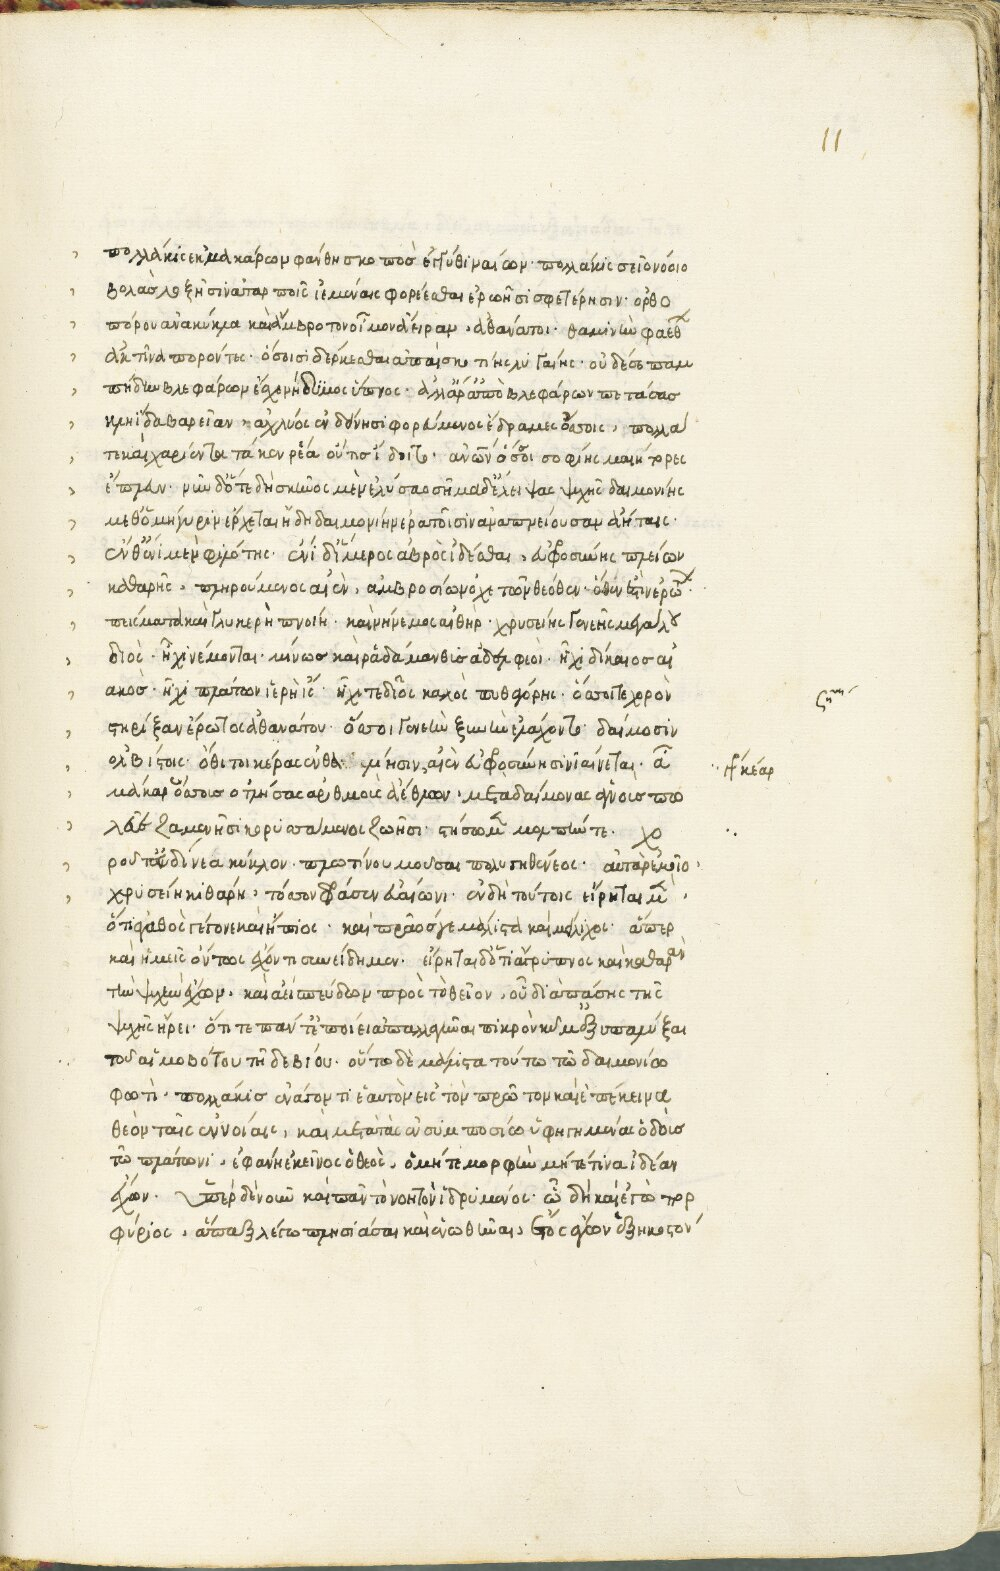 πολλάκις ἐκ μακάρων φάνθη σκοπὸσ ἐγγύθι ναίων· πολλάκις σεῖο νόοιο
βολὰσ λοξῆσιν ἀταρποῖς ἱεμένας φορέεσθαι ἐρωῆσι σφετέρησιν· ὀρθο
πόρου ἀνὰ κύκλα καὶ ἄμβροτον οἶμον ἄειραν, ἀθάνατοι· θαμινὴν φαεθ
ἀκτῖνα πορόντες· ὄσοισι δέρκεσθαι ἀπαὶ σκοτίης λυγαίης· οὐδέ σε παμ
πήδην βλεφάρων ἔχε νήδυμος ὕπνος· ἀλλ' ἄρ' ἀπὸ βλεφάρων πετάσας
κληῖδα βαρεῖαν, ἀχλύος ἐν δίνησι φορεύμενος ἔδρακες ὄσσοις, πολλά
τε καὶ χαρίεντα τά κεν ῥέα οὔτισ ἴδοιτο· ἀνων ὅσσοι σοφίης μαιήτορες
ἔπλευν· νῦν δ' ὅτε δὴ σκῆνος μὲν ἐλύσαο σῆμα δ' ἔλειψας ψυχῆς δαιμονίης
μεθ' ὁμήγυριν ἔρχεται ἤδη δαιμονίην ἐρατοῖσιν ἀναπνείουσαν ἀήταις·
ἔνθ' ἔνι μὲν φιλότης· ἐνὶ δ' ἵμερος ἁβρὸς ἰδέσθαι, εὐφροσύνης πλείων
καθαρῆς, πληρούμενος αἰὲν, ἀμβροσίων ὀχετῶν θεόθεν· ὅθεν ἐστὶν ἐρώτ·
πείσματα καὶ γλυκερὴ πνοιὴ· καὶ νήνεμος αἰθὴρ· χρυσείης γενεῆς μεγάλου
διὸς· ἧχι νέμονται· μίνωσ καὶ ῥαδάμανθυσ ἀδελφεοὶ· ἧχι δίκαιοσ αἰ
ακὸσ· ἧχι πλάτων ἱερὴ ἴς· ἧχι τε δῖος καλὸς πυθαγόρης· ὅσσοι τε χορὸν
στήριξαν ἔρωτος ἀθανάτου· ὅσσοι γενεὴν ξυνὴν ἐλάχοντο· δαίμοσιν
ὀλβίστοις· ὅθι τοι κέρας ἐνθα μήησιν, αἰὲν εὐφροσύνησιν ἰαίνεται· ἆ
μάκαρ ὅσσοισ ὀτλήσας ἀριθμοὺς ἀέθλων· μετὰ δαίμονας ἁγνοὺς πω
λέεαι ζαμενῆσι κορυσσάμενος ζωῆσι· στήσωμεν μολπὴν τε. χο
ροῦ τ' εὐδίνεα κύκλον· πλωτίνου μοῦσαι πολυγηθενέος· αὐτὰρ ἐμοῖο,
χρυσείη κιθάρη, τόσσον φράσεν εὐαίωνι· ἐν δὴ τούτοις εἴρηται μὲν,
ὅτι ἀγαθὸς γέγονε καὶ ἤπιος· καὶ πρᾶοσ γε μάλιστα καὶ μείλιχος· ἅπερ
καὶ ἡμεῖς ὄντως ἔχοντι συνείδημεν· εἴρηται δ' ὅτι ἄγρυπνος καὶ καθαρὰν
τὴν ψυχὴν ἔχων, καὶ ἀεὶ σπεύδων πρὸς τὸ θεῖον, οὗ διαπάσης τῆς
ψυχῆς ἤρει· ὅτι τε παντ' ἐποίει ἀπαλλαγῆναι πικρὸν κῦμ' ἐξυπαλύξαι
τοῦ αἱμοβότου τῆδε βίου· οὕτω δὲ μάλιστα τούτω τῶ δαιμονίω
φωτὶ· πολλάκισ ἐνάγοντι ἑαυτὸν εἰς τὸν πρῶτον καὶ ἐπέκεινα
θεὸν ταῖς ἐννοίαις, καὶ μετὰ τὰς ἐν συμποσίω ὑφηγημένας ὁδοὺσ
τῶ πλάτωνι, ἐφάνη ἐκεῖνος ὁ θεὸς, ὁ μήτε μορφὴν μήτέ τινα ἰδέαν
ἔχων· ὑπὲρ δὲ νοῦν καὶ πᾶν τὸ νοητὸν ἱδρυμένος· ὧ δὴ καὶ ἐγὼ πορ
φύριος, ἅπαξ λέγω πλησιάσαι καὶ ἑνωθῆναι, ἔτος ἄγων ἑξηκοστόν
κέαρ
11